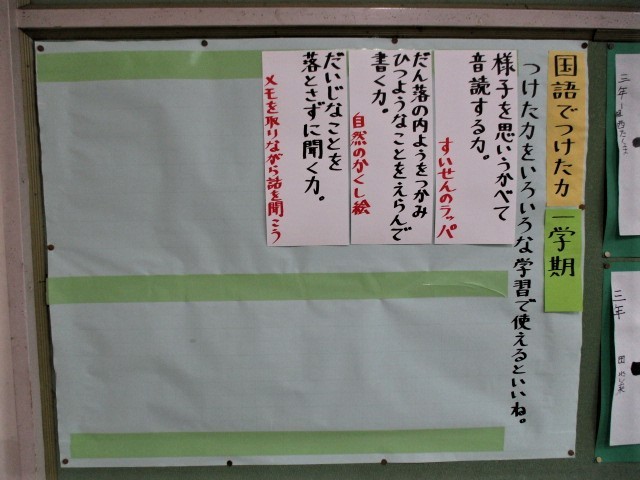 国語でつけた力
一学期
つけた力をいろいろな学習で使えるといいね。
様子を思いうかべて
音読する力。
すいせんのラッパ
だん落の内ようをつかみ
ひつようなことをえらんで
書く力。
自然のかくし絵
だいじなことを
落とさずに聞く力。
メモを取りながら話を聞こう
三年
三年